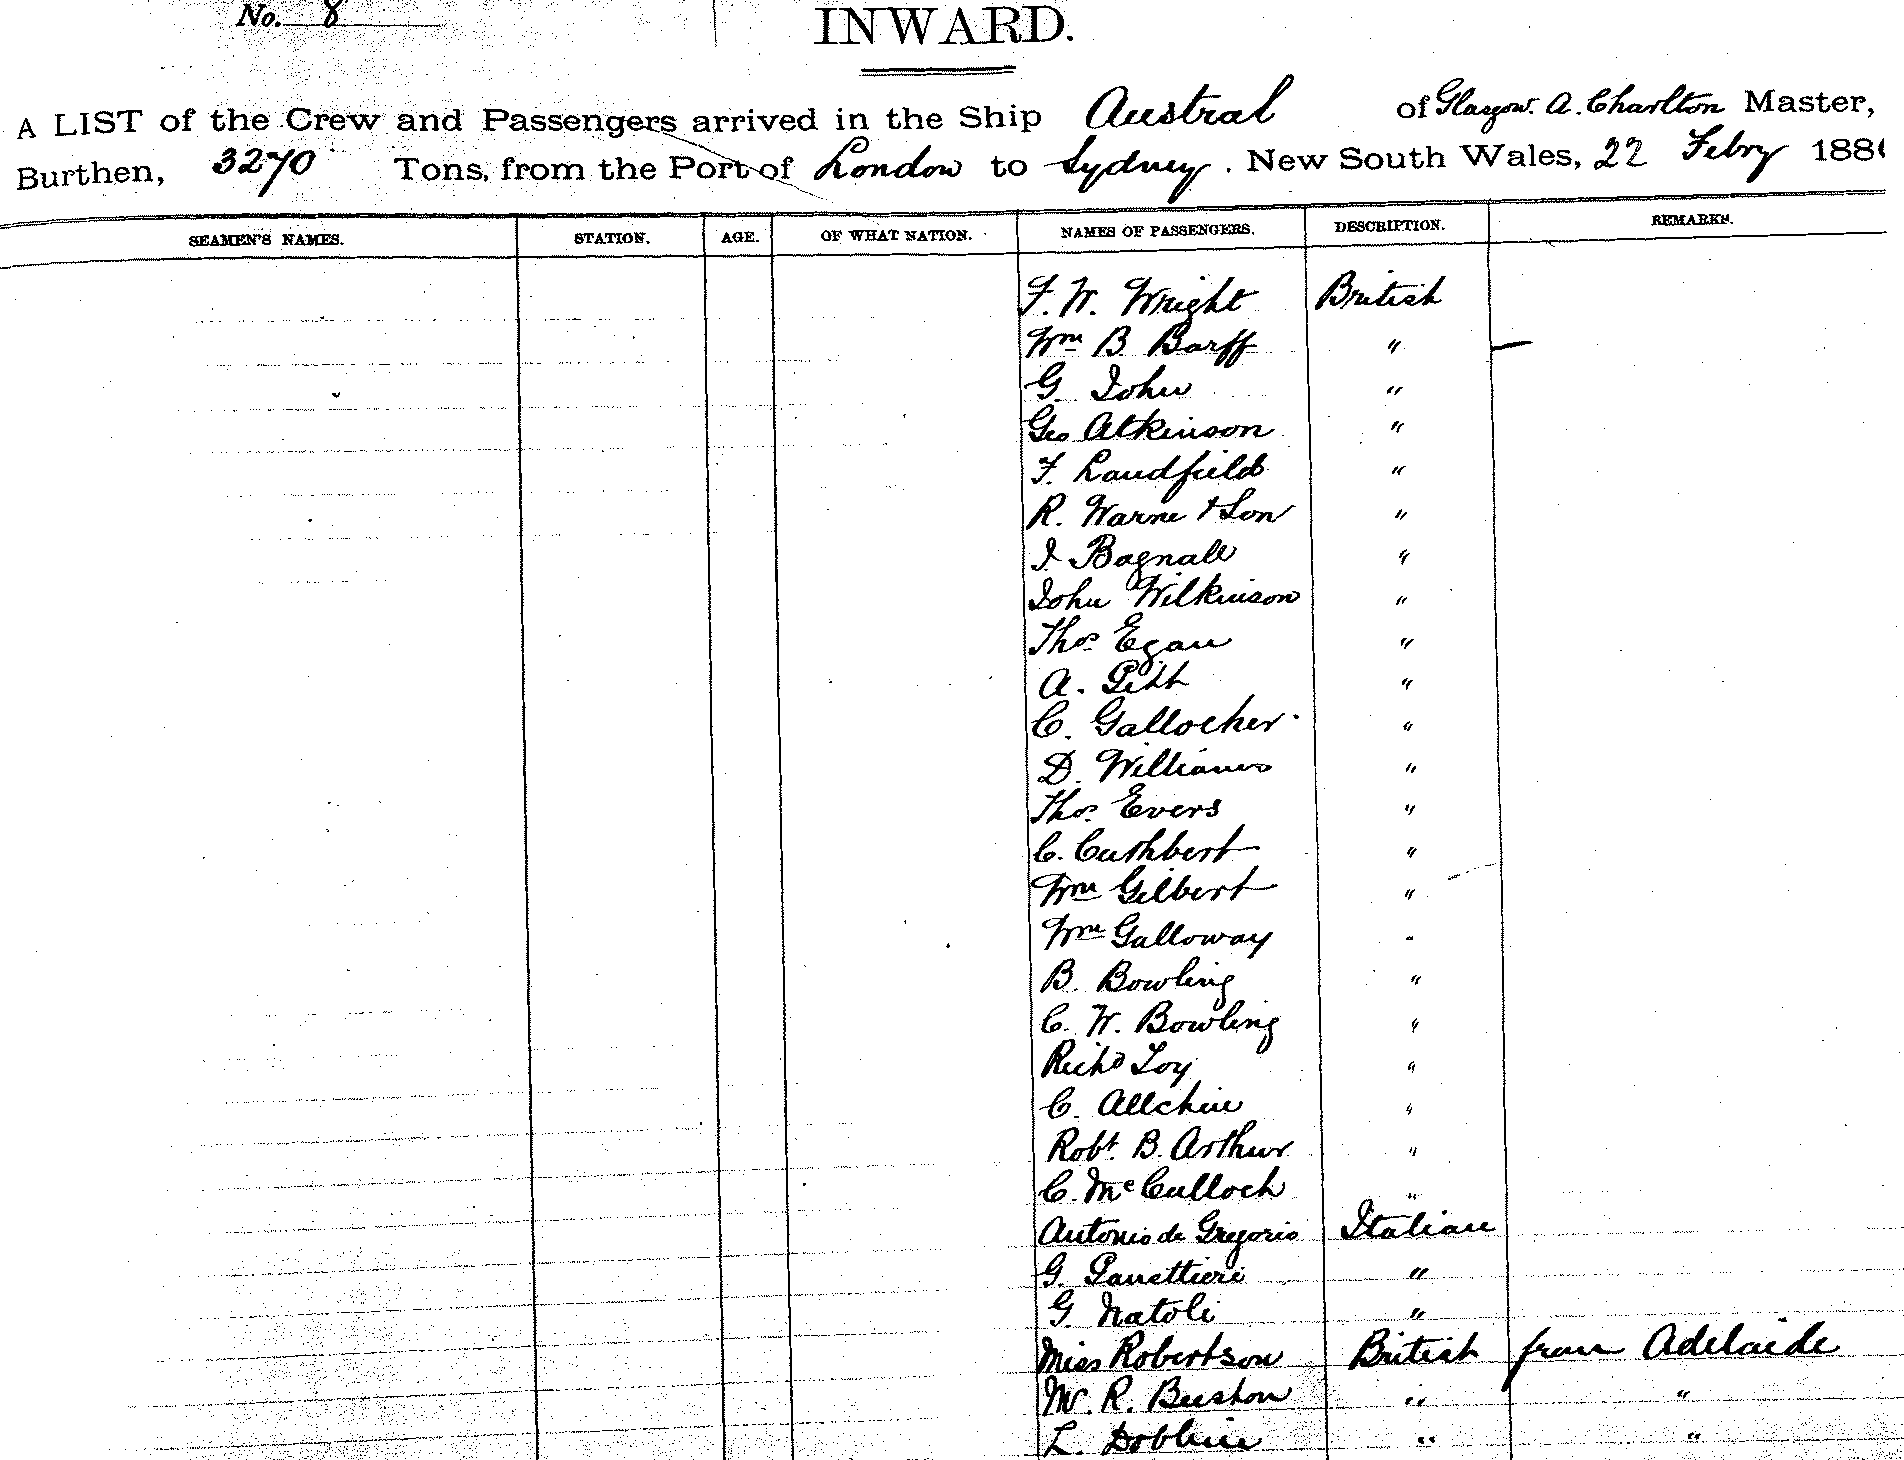 No. 8
INWARD.
A LIST of the Crew and Passengers arrived in the Ship Austral of Glasgow. A. Charlton Master,
Burthen, 3270 Tons, from the Port of London to Sydney. New South Wales, 22 Febry 188
SEAMEN'S NAMES. STATION. AGE. OF WHAT NATION. NAMES OF PASSENGERS. DESCRIPTION. REMARKS.
F. W. Wright British
Wm B Barff "
G. John "
Geo Atkinson "
F. Landfield "
R. Warne & Son "
J. Bagnall "
John Wilkinson "
Thos Egan "
A. Pitt "
C. Gallocher "
D. Williams "
Thos. Evers "
C. Cuthbert "
Wm Gilbert "
Wm Galloway "
B. Bowling "
C. W. Bowling "
Richd Loy "
C. Allchin "
Robt. B. Arthur "
C. McCulloch "
Antonio de Gregorio Italian
G. Panettieri "
G. Natoli "
Miss Robertson British from Adelaide
Mr. R. Beeston " "
L. Dobbin " "